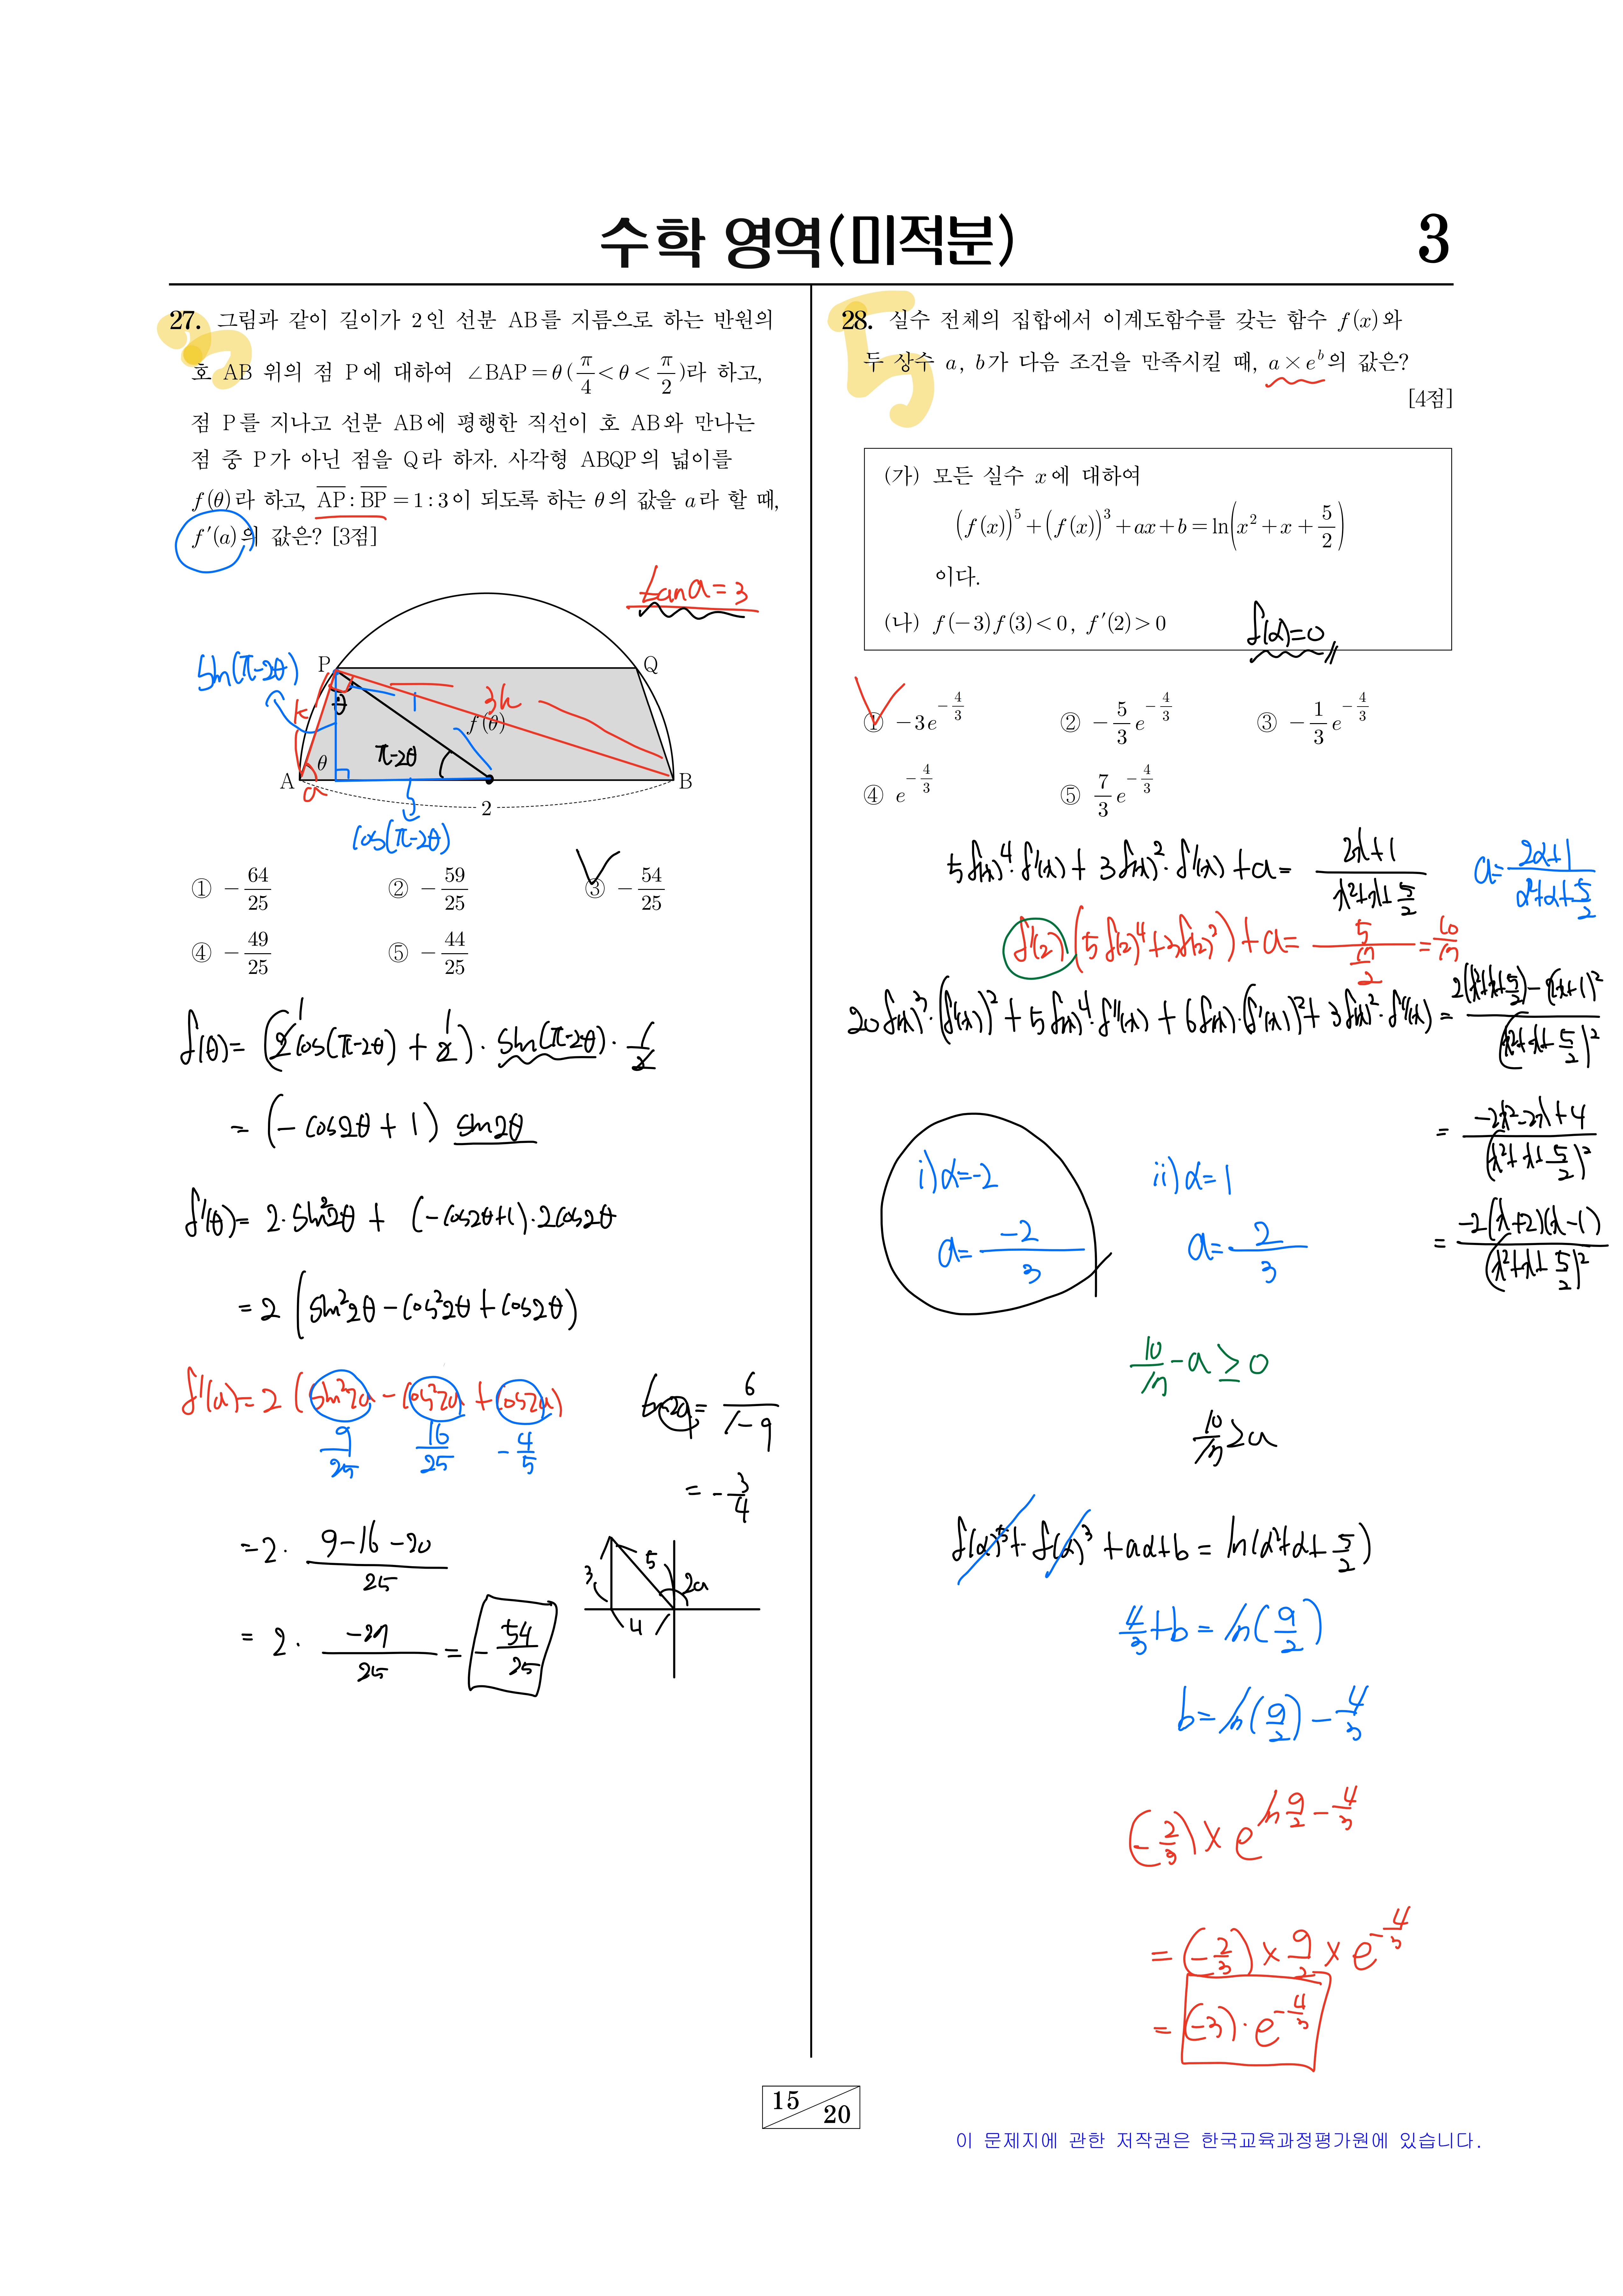 수학 영역(미적분)
3
27. 그림과 같이 길이가 2인 선분 AB를 지름으로 하는 반원의
호 AB 위의 점 P에 대하여 ∠BAP=θ(π/4<θ<π/2)라 하고,
점 P를 지나고 선분 AB에 평행한 직선이 호 AB와 만나는
점 중 P가 아닌 점을 Q라 하자. 사각형 ABQP의 넓이를
f(θ)라 하고, AP:BP=1:3이 되도록 하는 θ의 값을 a라 할 때,
f′(a)의 값은? [3점]
tan a=3
sin(π-2θ)
P
Q
θ
1
3k
k
f(θ)
π-2θ
θ
A
B
a
2
cos(π-2θ)
① -64/25
② -59/25
③ -54/25
④ -49/25
⑤ -44/25
f(θ)= (2cos(π-2θ)+2)·sin(π-2θ)·1/2
= (-cos2θ+1) sin2θ
f′(θ)= 2·sin²2θ + (-cos2θ+1)·2cos2θ
= 2(sin²2θ-cos²2θ+cos2θ)
f′(a)=2(sin²2a-cos²2a+cos2a)
9/25
16/25
-4/5
tan2a= 6/1-9
= -3/4
=2· 9-16-20/25
= 2· -27/25 = -54/25
3
5
4
2a
28. 실수 전체의 집합에서 이계도함수를 갖는 함수 f(x)와
두 상수 a, b가 다음 조건을 만족시킬 때, a×e^b의 값은?
[4점]
(가) 모든 실수 x에 대하여
(f(x))^5+(f(x))^3+ax+b=ln(x²+x+5/2)
이다.
(나) f(-3)f(3)<0, f′(2)>0
f(α)=0
① -3e^(-4/3)
② -5/3 e^(-4/3)
③ -1/3 e^(-4/3)
④ e^(-4/3)
⑤ 7/3 e^(-4/3)
5f(x)^4·f′(x)+3f(x)^2·f′(x)+a= 2x+1/x²+x+5/2
a= 2α+1/α²+α+5/2
f′(2)(5f(2)^4+3f(2)^2)+a= 5/(17/2) = 10/17
20f(x)^3·(f′(x))^2+5f(x)^4·f″(x)+6f(x)·(f′(x))^2+3f(x)^2·f″(x)= 2(x²+x+5/2)-(2x+1)²/(x²+x+5/2)²
= -2x²-2x+4/(x²+x+5/2)²
= -2(x+2)(x-1)/(x²+x+5/2)²
i) α=-2
a= -2/3
ii) α=1
a= 2/3
10/17-a≥0
10/17≥a
f(α)^5+f(α)^3+aα+b=ln(α²+α+5/2)
4/3+b=ln(9/2)
b=ln(9/2)-4/3
(-2/3)×e^(ln9/2-4/3)
=(-2/3)×9/2×e^(-4/3)
=(-3)·e^(-4/3)
15
20
이 문제지에 관한 저작권은 한국교육과정평가원에 있습니다.